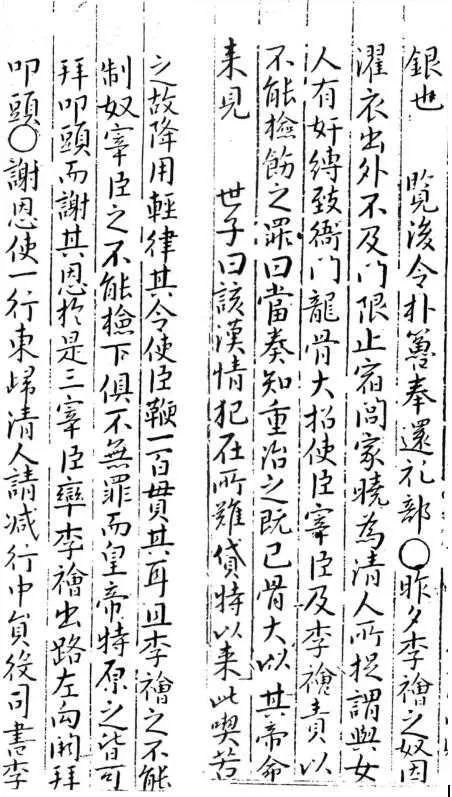 銀也 覧後令朴𥳑奉還礼部○昨夕李禬之奴因
濯衣出外不及門限止宿閭家曉為清人所捉謂與女
人有奸縛致衙門龍骨大招使臣宰臣及李禬責以
不能檢飭之罪曰當奏知重治之既已骨大以其帝命
来見 世子曰該漢情犯在所難貸特以来此喫苦
之故降用輕律其令使臣鞭一百貫其耳且李禬之不能
制奴宰臣之不能檢下俱不無罪而皇帝特原之皆可
拜叩頭而謝其恩於是三宰臣率李禬出路左向闕拜
叩頭○謝恩使一行東歸清人請减行中員役司書李